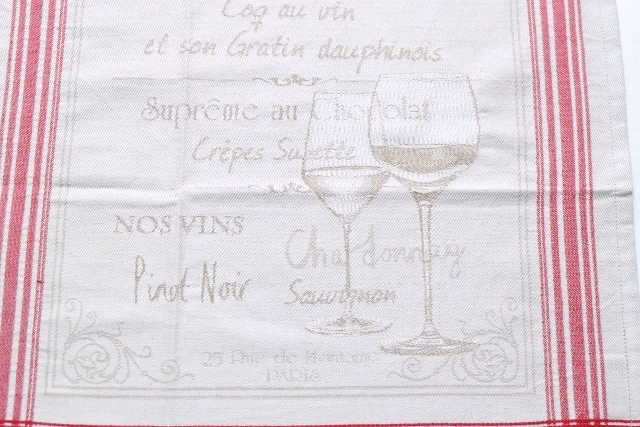 Coq au vin
et son Gratin dauphinois
Suprême au Chocolat
Crêpes Suzette
NOS VINS
Chardonnay
Pinot Noir
Sauvignon
25 Rue de
PARIS